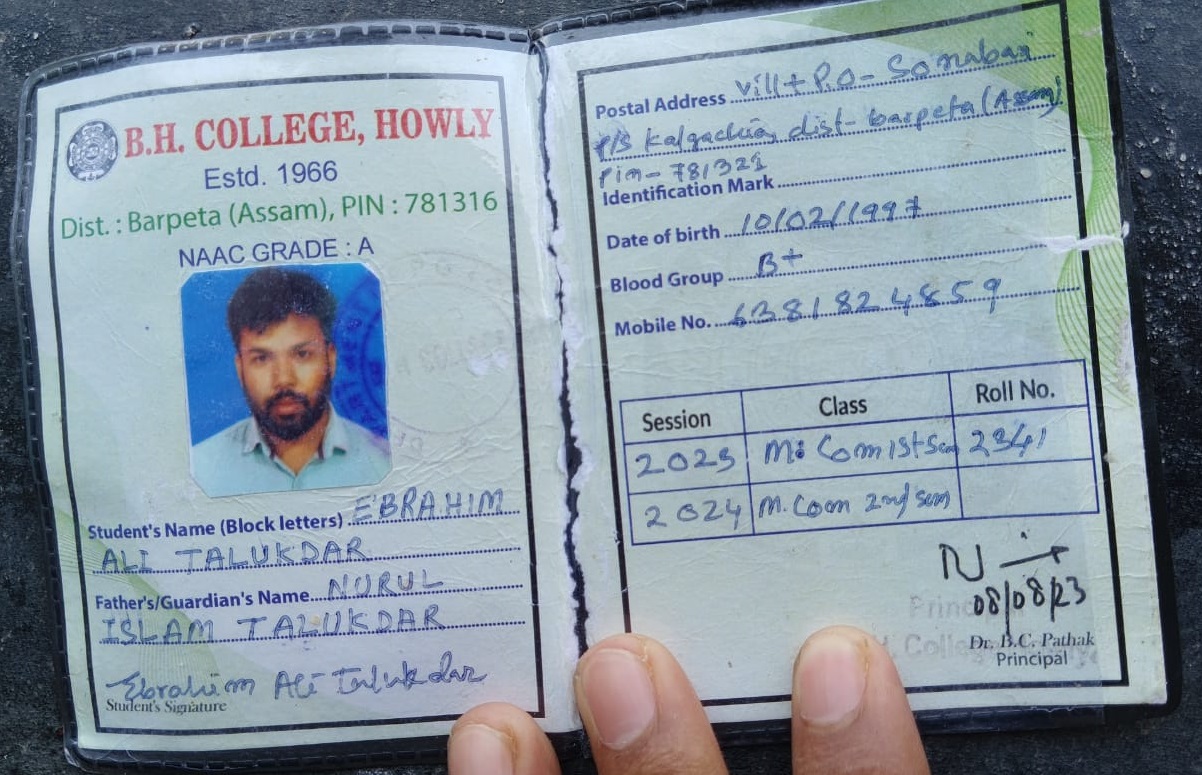 B.H. COLLEGE, HOWLY
Estd. 1966
Dist. : Barpeta (Assam), PIN : 781316
NAAC GRADE : A
Student's Name (Block letters) EBRAHIM
ALI TALUKDAR
Father's/Guardian's Name NURUL
ISLAM TALUKDAR
Ebrahim Ali Talukdar
Student's Signature
Postal Address Vill + P.O - Sonabari
P/S Kalgachia, dist - barpeta (Assam)
Pin - 781321
Identification Mark
Date of birth 10/02/1997
Blood Group B+
Mobile No. 6381824859
Session Class Roll No.
2023 M. Com 1st Sem 2341
2024 M. Com 2nd Sem
08/08/23
Dr. B.C. Pathak
Principal